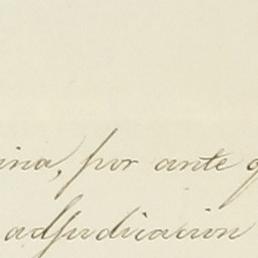 ina, por ante q
adjudicacion